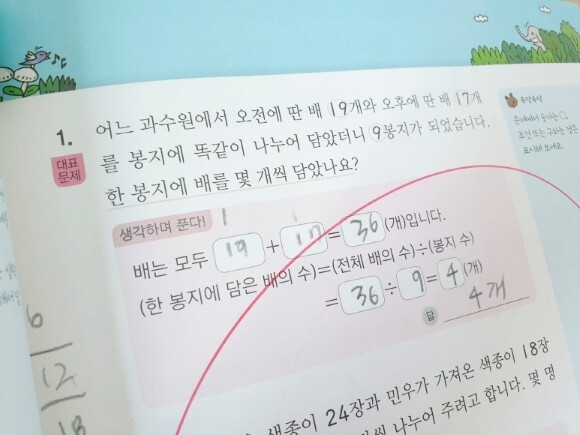 1.
대표
문제
어느 과수원에서 오전에 딴 배 19개와 오후에 딴 배 17개
를 봉지에 똑같이 나누어 담았더니 9봉지가 되었습니다.
한 봉지에 배를 몇 개씩 담았나요?
생각하며 푼다!
배는 모두 19 + 17 = 36 (개)입니다.
(한 봉지에 담은 배의 수)=(전체 배의 수)÷(봉지 수)
= 36 ÷ 9 = 4 (개)
답 4개
색종이 24장과 민우가 가져온 색종이 18장
나누어 주려고 합니다. 몇 명
6
12
18